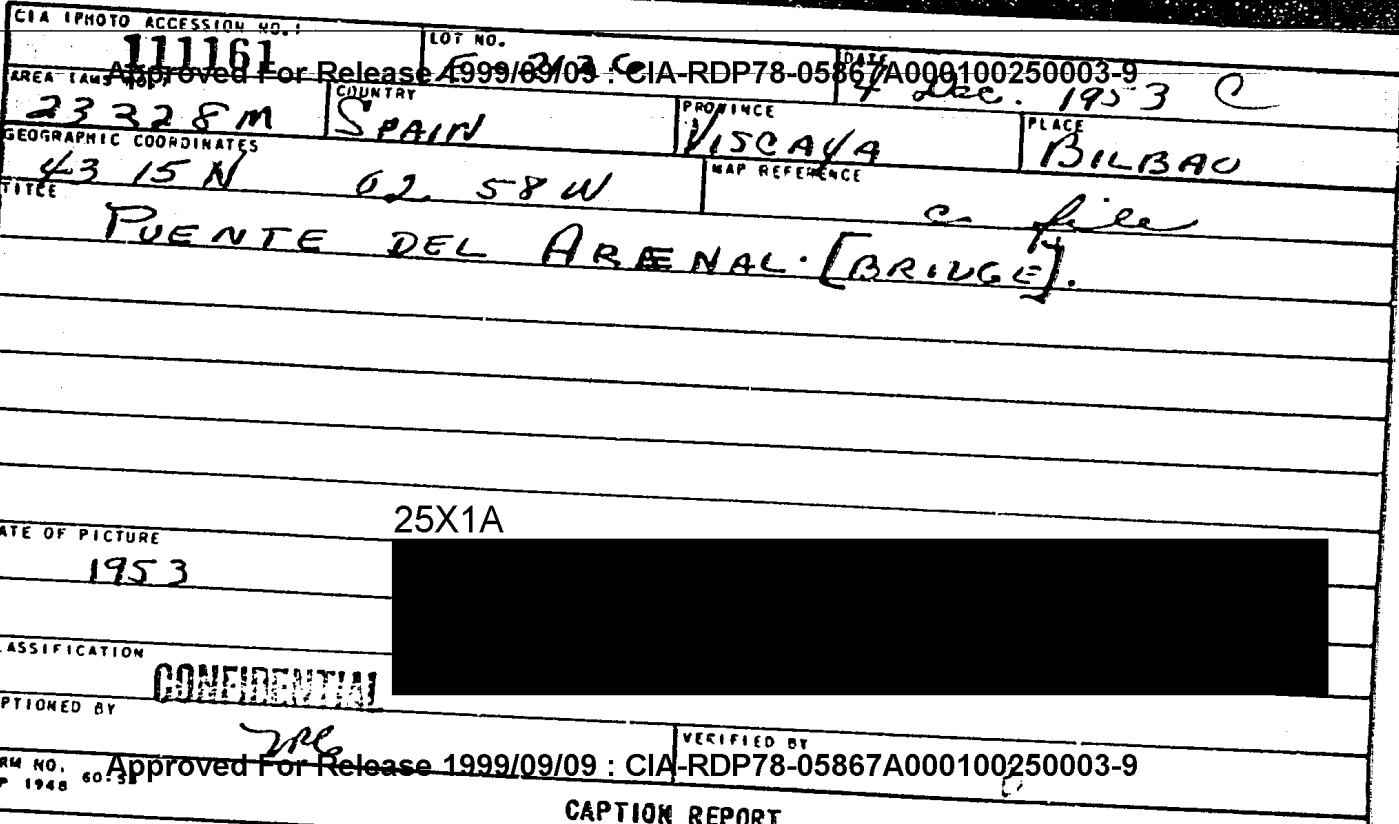 CIA PHOTO ACCESSION NO.:
111161
LOT NO.
DATE
Approved For Release 1999/09/09 : CIA-RDP78-05867A000100250003-9
4 Dec. 1953 C
AREA
23328M
COUNTRY
SPAIN
PROVINCE
VISCAYA
PLACE
BILBAO
GEOGRAPHIC COORDINATES
43 15 N 02 58 W
MAP REFERENCE
c file
TITLE
PUENTE DEL ARENAL. [BRIDGE].
25X1A
ATE OF PICTURE
1953
ASSIFICATION
CONFIDENTIAL
PTIONED BY
VERIFIED BY
RM NO.
P 1948
Approved For Release 1999/09/09 : CIA-RDP78-05867A000100250003-9
CAPTION REPORT